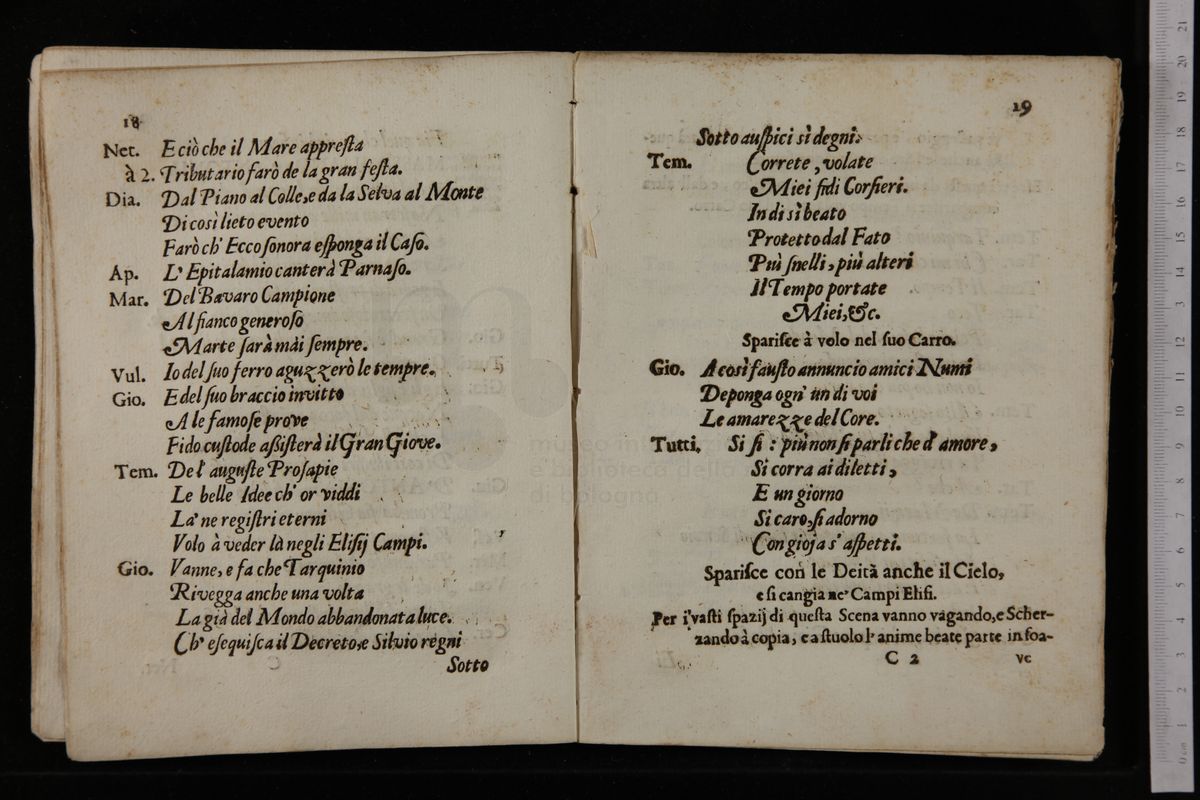 18
Net. E ciò che il Mare appresta
à 2. Tributario farò de la gran festa.
Dia. Dal Piano al Colle, e da la Selva al Monte
Di così lieto evento
Farò ch' Ecco sonora esponga il Caso.
Ap. L' Epitalamio canterà Parnaso.
Mar. Del Bavaro Campione
Al fianco generoso
Marte sarà mài sempre.
Vul. Io del suo ferro aguzzerò le tempre.
Gio. E del suo braccio invitto
A le famose prove
Fido custode assisterà il Gran Giove.
Tem. De l' auguste Prosapie
Le belle Idee ch' or viddi
La' ne registri eterni
Volo à veder là negli Elisij Campi.
Gio. Vanne, e fa che Tarquinio
Rivegga anche una volta
La già del Mondo abbandonata luce.
Ch' esequisca il Decreto, e Silvio regni
Sotto
19
Sotto auspici sì degni.
Tem. Correte, volate
Miei fidi Corsieri.
In dì sì beato
Protetto dal Fato
Più snelli, più alteri
Il Tempo portate
Miei, &c.
Sparisce à volo nel suo Carro.
Gio. A così fausto annuncio amici Numi
Deponga ogn' un di voi
Le amarezze del Core.
Tutti. Si si: più non si parli che d' amore,
Si corra ai diletti,
E un giorno
Si caro, si adorno
Con gioja s' aspetti.
Sparisce con le Deità anche il Cielo,
e si cangia ne' Campi Elisi.
Per i' vasti spazij di questa Scena vanno vagando, e Scher-
zando à copia, e a stuolo l' anime beate parte in soa-
C 2 ve
museo
e biblioteca dello
di bologna